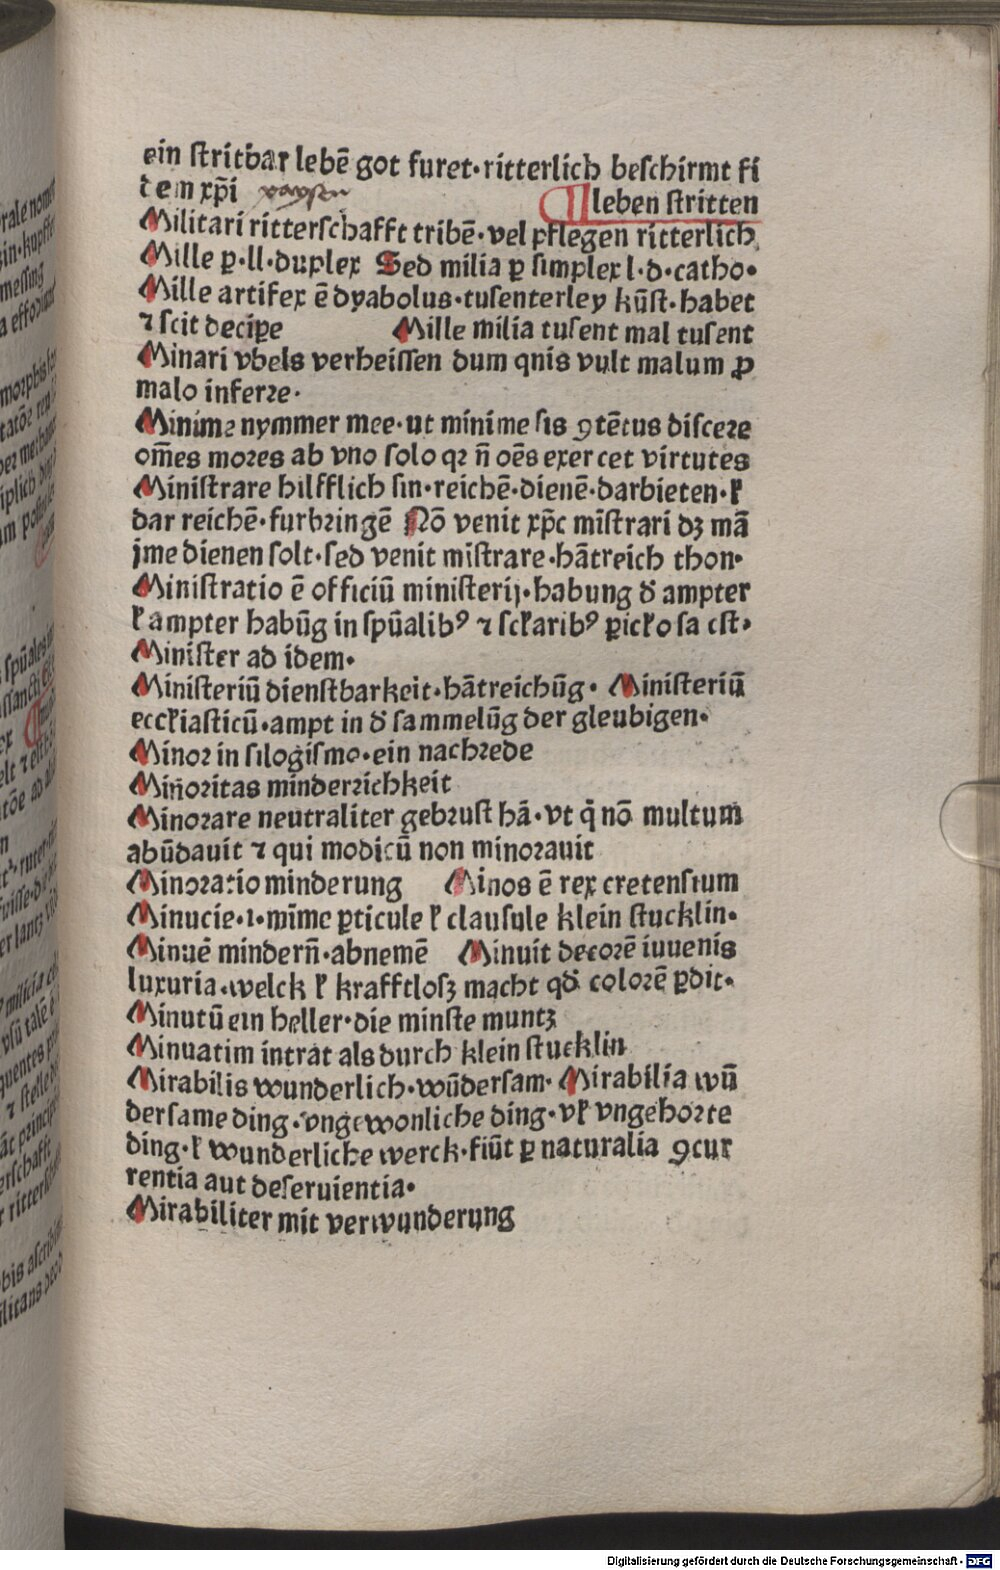 ein ſtritbar lebē got furet·ritterlich beſchirmt fi
dem xp̄i
leben ſtritten
Militari ritterſchafft tribē·vel pflegen ritterlich
Mille ꝑ·ll·duplex Sed milia ꝑ ſimplex l·d·catho·
Mille artifex ē dyabolus·tuſenterley kūſt·habet
⁊ ſcit decipe Mille milia tuſent mal tuſent
Minari vbels verheiſſen dum qnis vult malum ꝓ
malo inferꝛe·
Minime nymmer mee·ut minime ſis ꝯtētus diſceꝛe
om̄es moꝛes ab vno ſolo qꝛ n̄ oēs exercet virtutes
Miniſtrare hilfflich ſin·reichē·dienē·darbieten·ꝉ
dar reichē·furbꝛingē Nō venit xp̄c mīſtrari dꝫ mā
jme dienen ſolt·ſed venit miſtrare·hātreich thon·
Miniſtratio ē officiū miniſterij·habung d̓ ampter
ꝉ ampter habūg in ſpūalibꝰ ⁊ ſcꝉaribꝰ ꝑicꝉoſa eſt·
Miniſter ad idem·
Miniſteriū dienſtbarkeit·hātreichūg· Miniſteriū
eccꝉiaſticū·ampt in d̓ ſammelūg der gleubigen·
Minoꝛ in ſilogiſmo·ein nachꝛede
Min̄oꝛitas minderꝛichkeit
Minoꝛare neutraliter gebꝛuſt hā·vt q̄ nō multum
abūdauit ⁊ qui modicū non minoꝛauit
Minoꝛatio minderung Minos ē rex cretenſium
Minucie·i·mīme ꝑticule ꝉ clauſule klein ſtucklin·
Minuē mindern̄·abnemē Minuit decoꝛē iuuenis
luxuria·welck ꝉ krafftloſꝫ macht qd̓ coloꝛē ꝑdit·
Minutū ein heller·die minſte muntꝫ
Minuatim intrat als durch klein ſtucklin
Mirabilis wunderlich·wūderſam· Mirabilia wū
derſame ding·vngewonliche ding·vꝉ vngehoꝛte
ding·ꝉ wunderliche werck·fiūt ꝑ naturalia ꝯcur
rentia aut deſeruientia·
Mirabiliter mit verwunderung
Digitalisierung gefördert durch die Deutsche Forschungsgemeinschaft - DFG